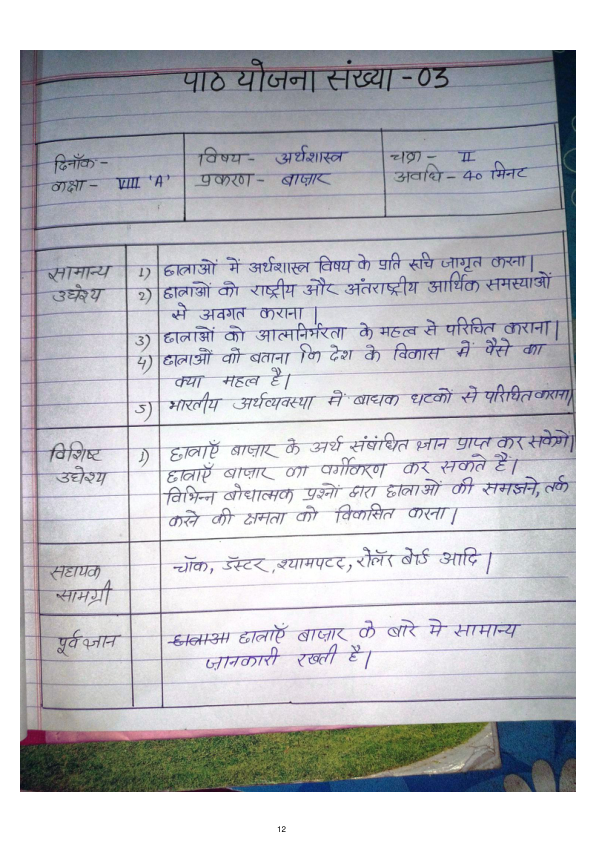 पाठ योजना संख्या - 03
दिनाँक -
कक्षा - VIII 'A'
विषय - अर्थशास्त्र
प्रकरण - बाज़ार
चक्र - II
अवधि - 40 मिनट
सामान्य उद्देश्य
1) छात्राओं में अर्थशास्त्र विषय के प्रति रुचि जागृत करना।
2) छात्राओं को राष्ट्रीय और अंतराष्ट्रीय आर्थिक समस्याओं
से अवगत कराना।
3) छात्राओं को आत्मनिर्भरता के महत्व से परिचित कराना।
4) छात्राओं को बताना कि देश के विकास में पैसे का
क्या महत्व है।
5) भारतीय अर्थव्यवस्था में बाधक घटकों से परिचित कराना।
विशिष्ट उद्देश्य
1) छात्राएँ बाज़ार के अर्थ संबंधित ज्ञान प्राप्त कर सकेंगे।
छात्राएँ बाज़ार का वर्गीकरण कर सकते हैं।
विभिन्न बोधात्मक प्रश्नों द्वारा छात्राओं की समझने, तर्क
करने की क्षमता को विकसित करना।
सहायक सामग्री
चॉक, डॅस्टर, श्यामपटट, रोलॅर बोर्ड आदि।
पूर्व ज्ञान
छात्राओ छात्राएँ बाज़ार के बारे मे सामान्य
ज़ानकारी रखती है।
12